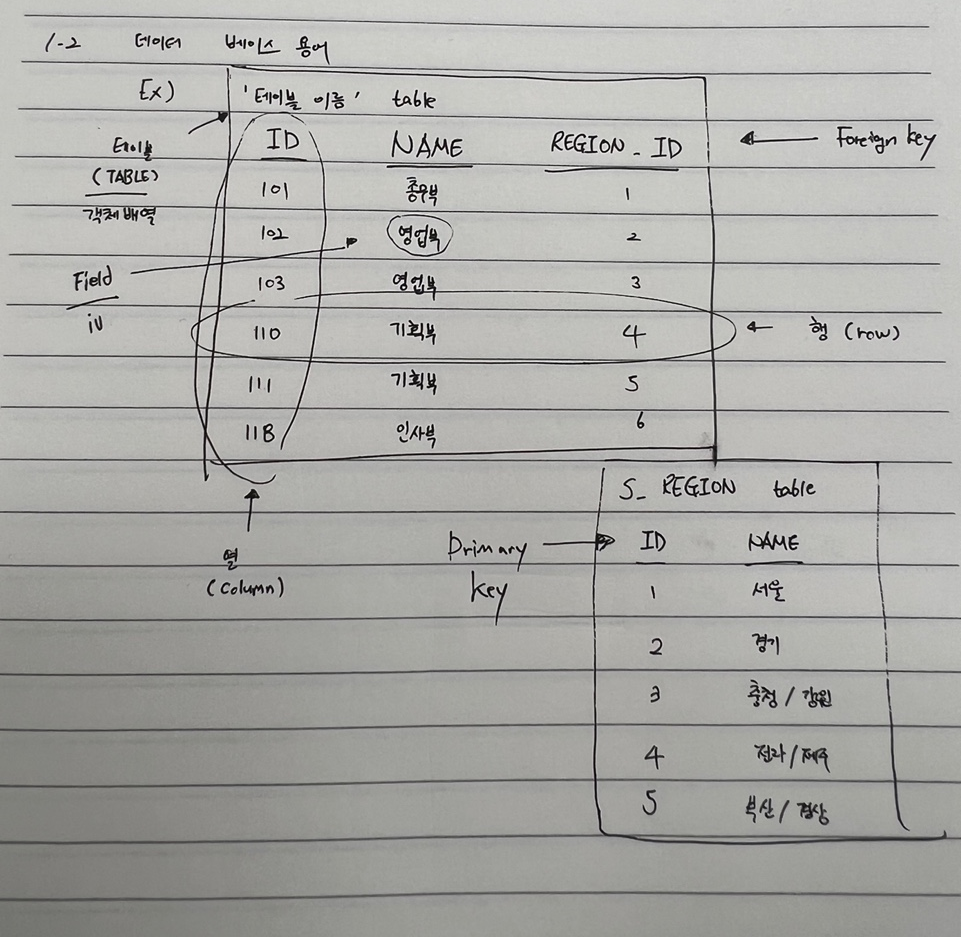 1-2 데이터 베이스 용어
Ex) '테이블 이름' table
테이블 (TABLE) 객체배열
ID NAME REGION_ID ← Foreign key
101 총무부 1
102 영업부 2
Field iv
103 영업부 3
110 기획부 4 ← 행 (row)
111 기획부 5
118 인사부 6
열 (column)
S_REGION table
Primary key → ID NAME
1 서울
2 경기
3 충청/강원
4 전라/제주
5 부산/경상